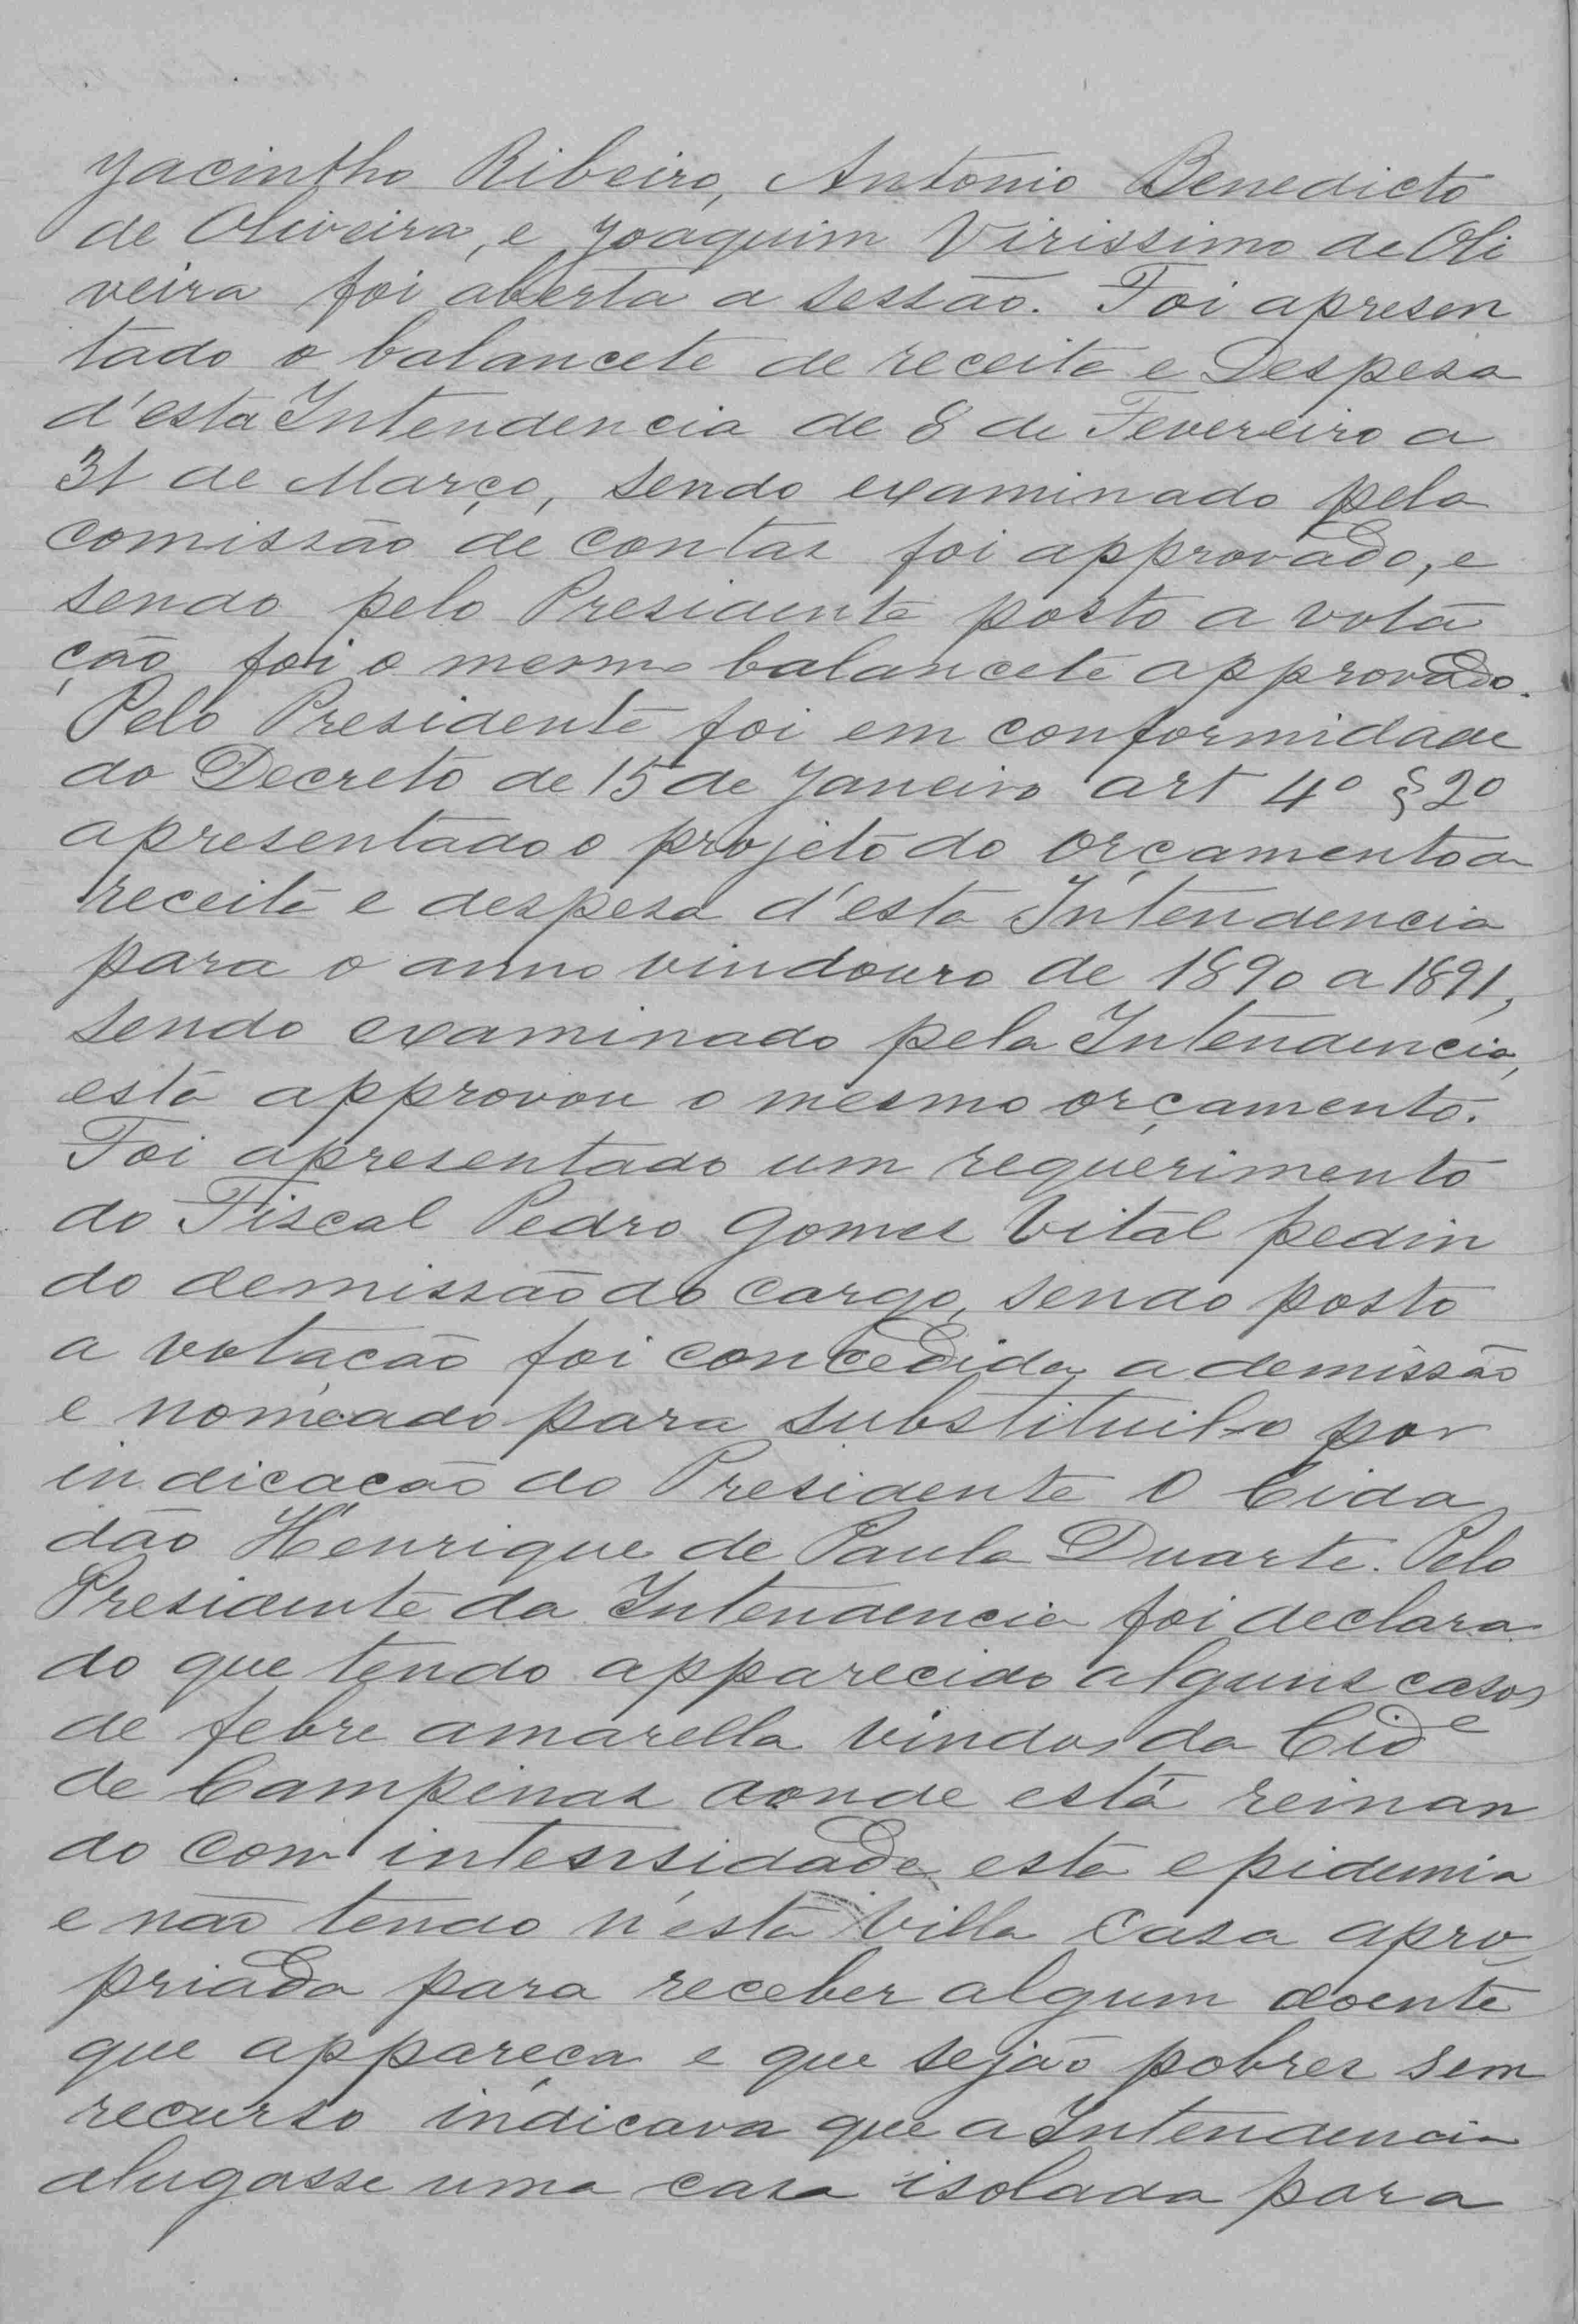 Jacintho Ribeiro, Antonio Benedicto
de Oliveira, e Joaquim Virissimo de Oli
veira foi aberta a sessão. Foi apresen
tado o balancete de receita e Despesa
d'esta Intendencia de 8 de Fevereiro a
31 de Março, sendo examinado pela
comissão de contas foi approvado, e
sendo pelo Presidente posto a vota
ção foi o mesmo balancete approvado.
Pelo Presidente foi em conformidade
do Decreto de 15 de Janeiro art 4º § 2º
apresentado o projeto do orçamento a
receita e despesa d'esta Intendencia
para o anno vindouro de 1890 a 1891,
sendo examinado pela Intendencia,
esta approvou o mesmo orçamento.
Foi apresentado um requerimento
do Fiscal Pedro Gomes Vital pedin
do demissão do cargo, sendo posto
a votação foi concedida a demissão
e nomeado para substituil-o por
indicação do Presidente O Cida
dão Henrique de Paula Duarte. Pelo
Presidente da Intendencia foi declara
do que tendo apparecido alguns casos
de febre amarella vindos da Cidᵉ
de Campinas aonde está reinan
do com intensidade esta epidemia
e não tendo n'esta Villa casa apro
priada para receber algum doente
que appareça e que sejão pobres sem
recurso indicava que a Intendencia
alugasse uma casa isolada para